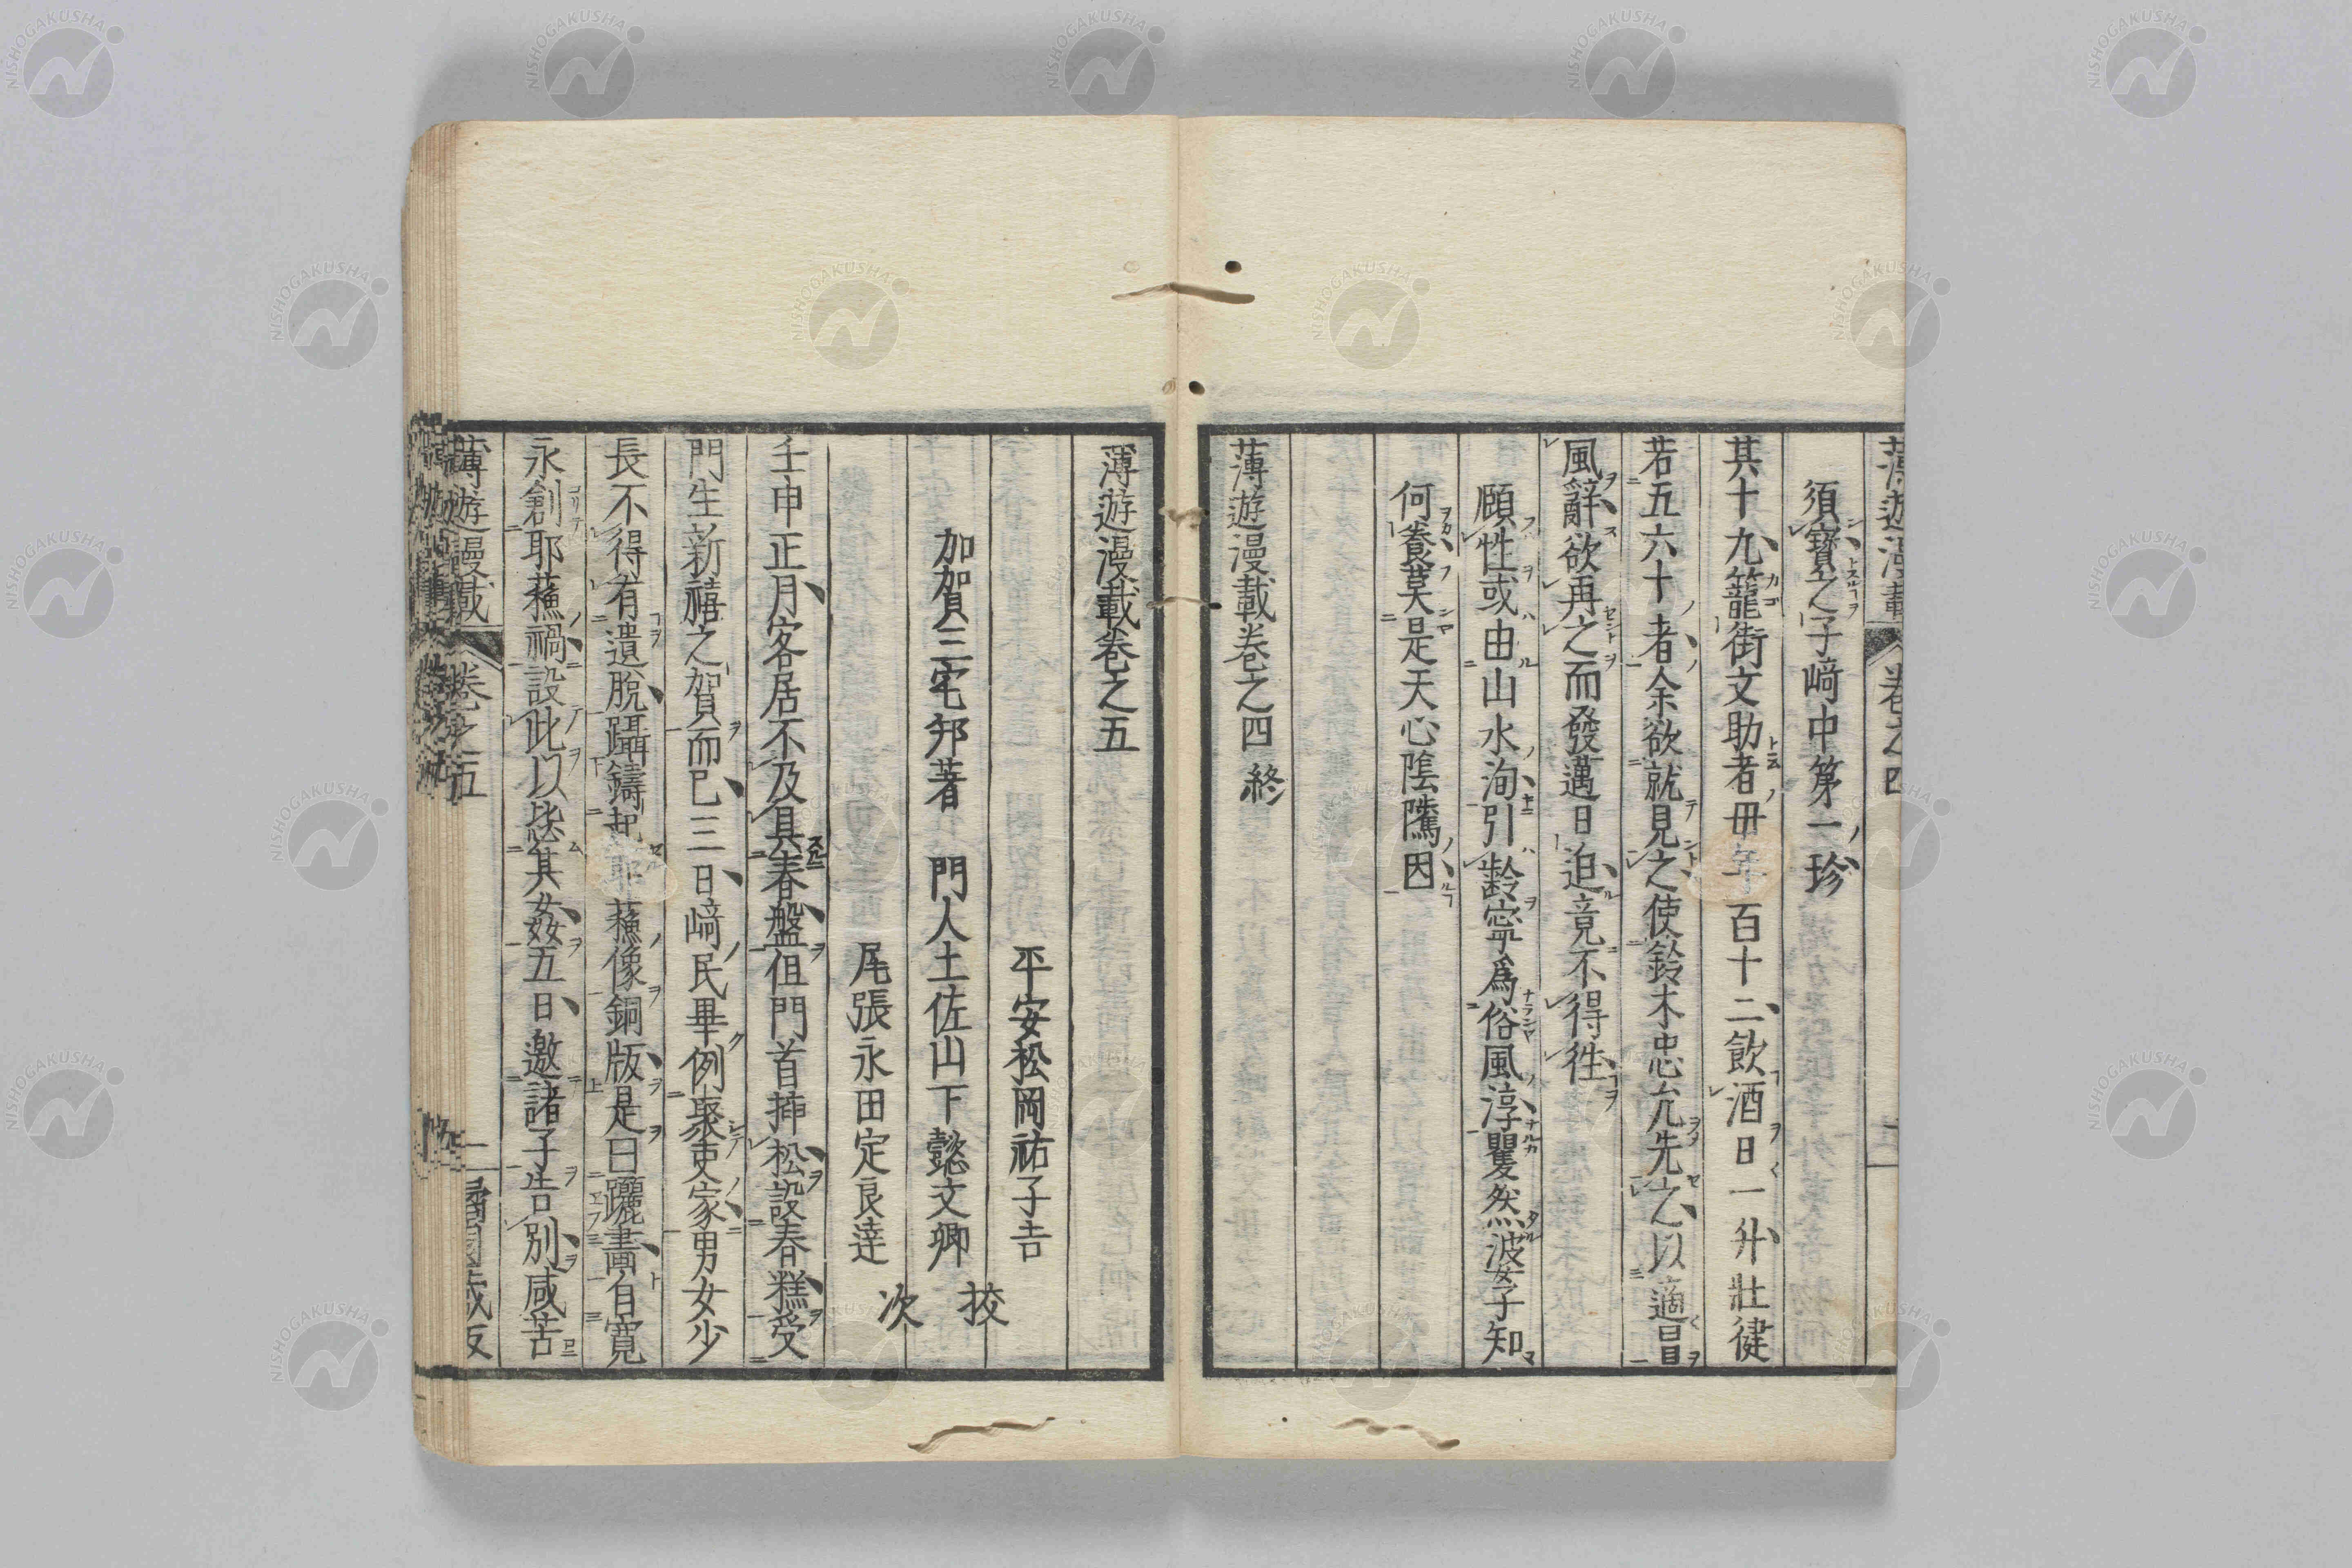 薄遊漫載 卷之四
須寶之子﨑中第一珍
其十九籠街文助者毋年百十二飲酒日一升壯健
若五六十者余欲就見之使鈴木忠允先之以適昌
風辭欲再之而發邁日迫竟不得徃
願性或由山水洵引齡寧爲俗風淳瞿然波子知
何養莫是天心陰隲因
薄遊漫載卷之四終
薄遊漫載卷之五
平安松岡祐子吉
加賀三宅邦著 門人土佐山下懿文卿 挍
尾張永田定良逹 次
壬申正月客居不及具春盤但門首揷松設春糕受
門生新禧之賀而已三日﨑民畢例聚吏家男女少
長不得有遺脫躡鑄耶蘓像銅版是曰躧畵自寬
永創耶蘓禍設此以毖其姦五日邀諸子告別咸苦
薄遊漫載 卷之五 一